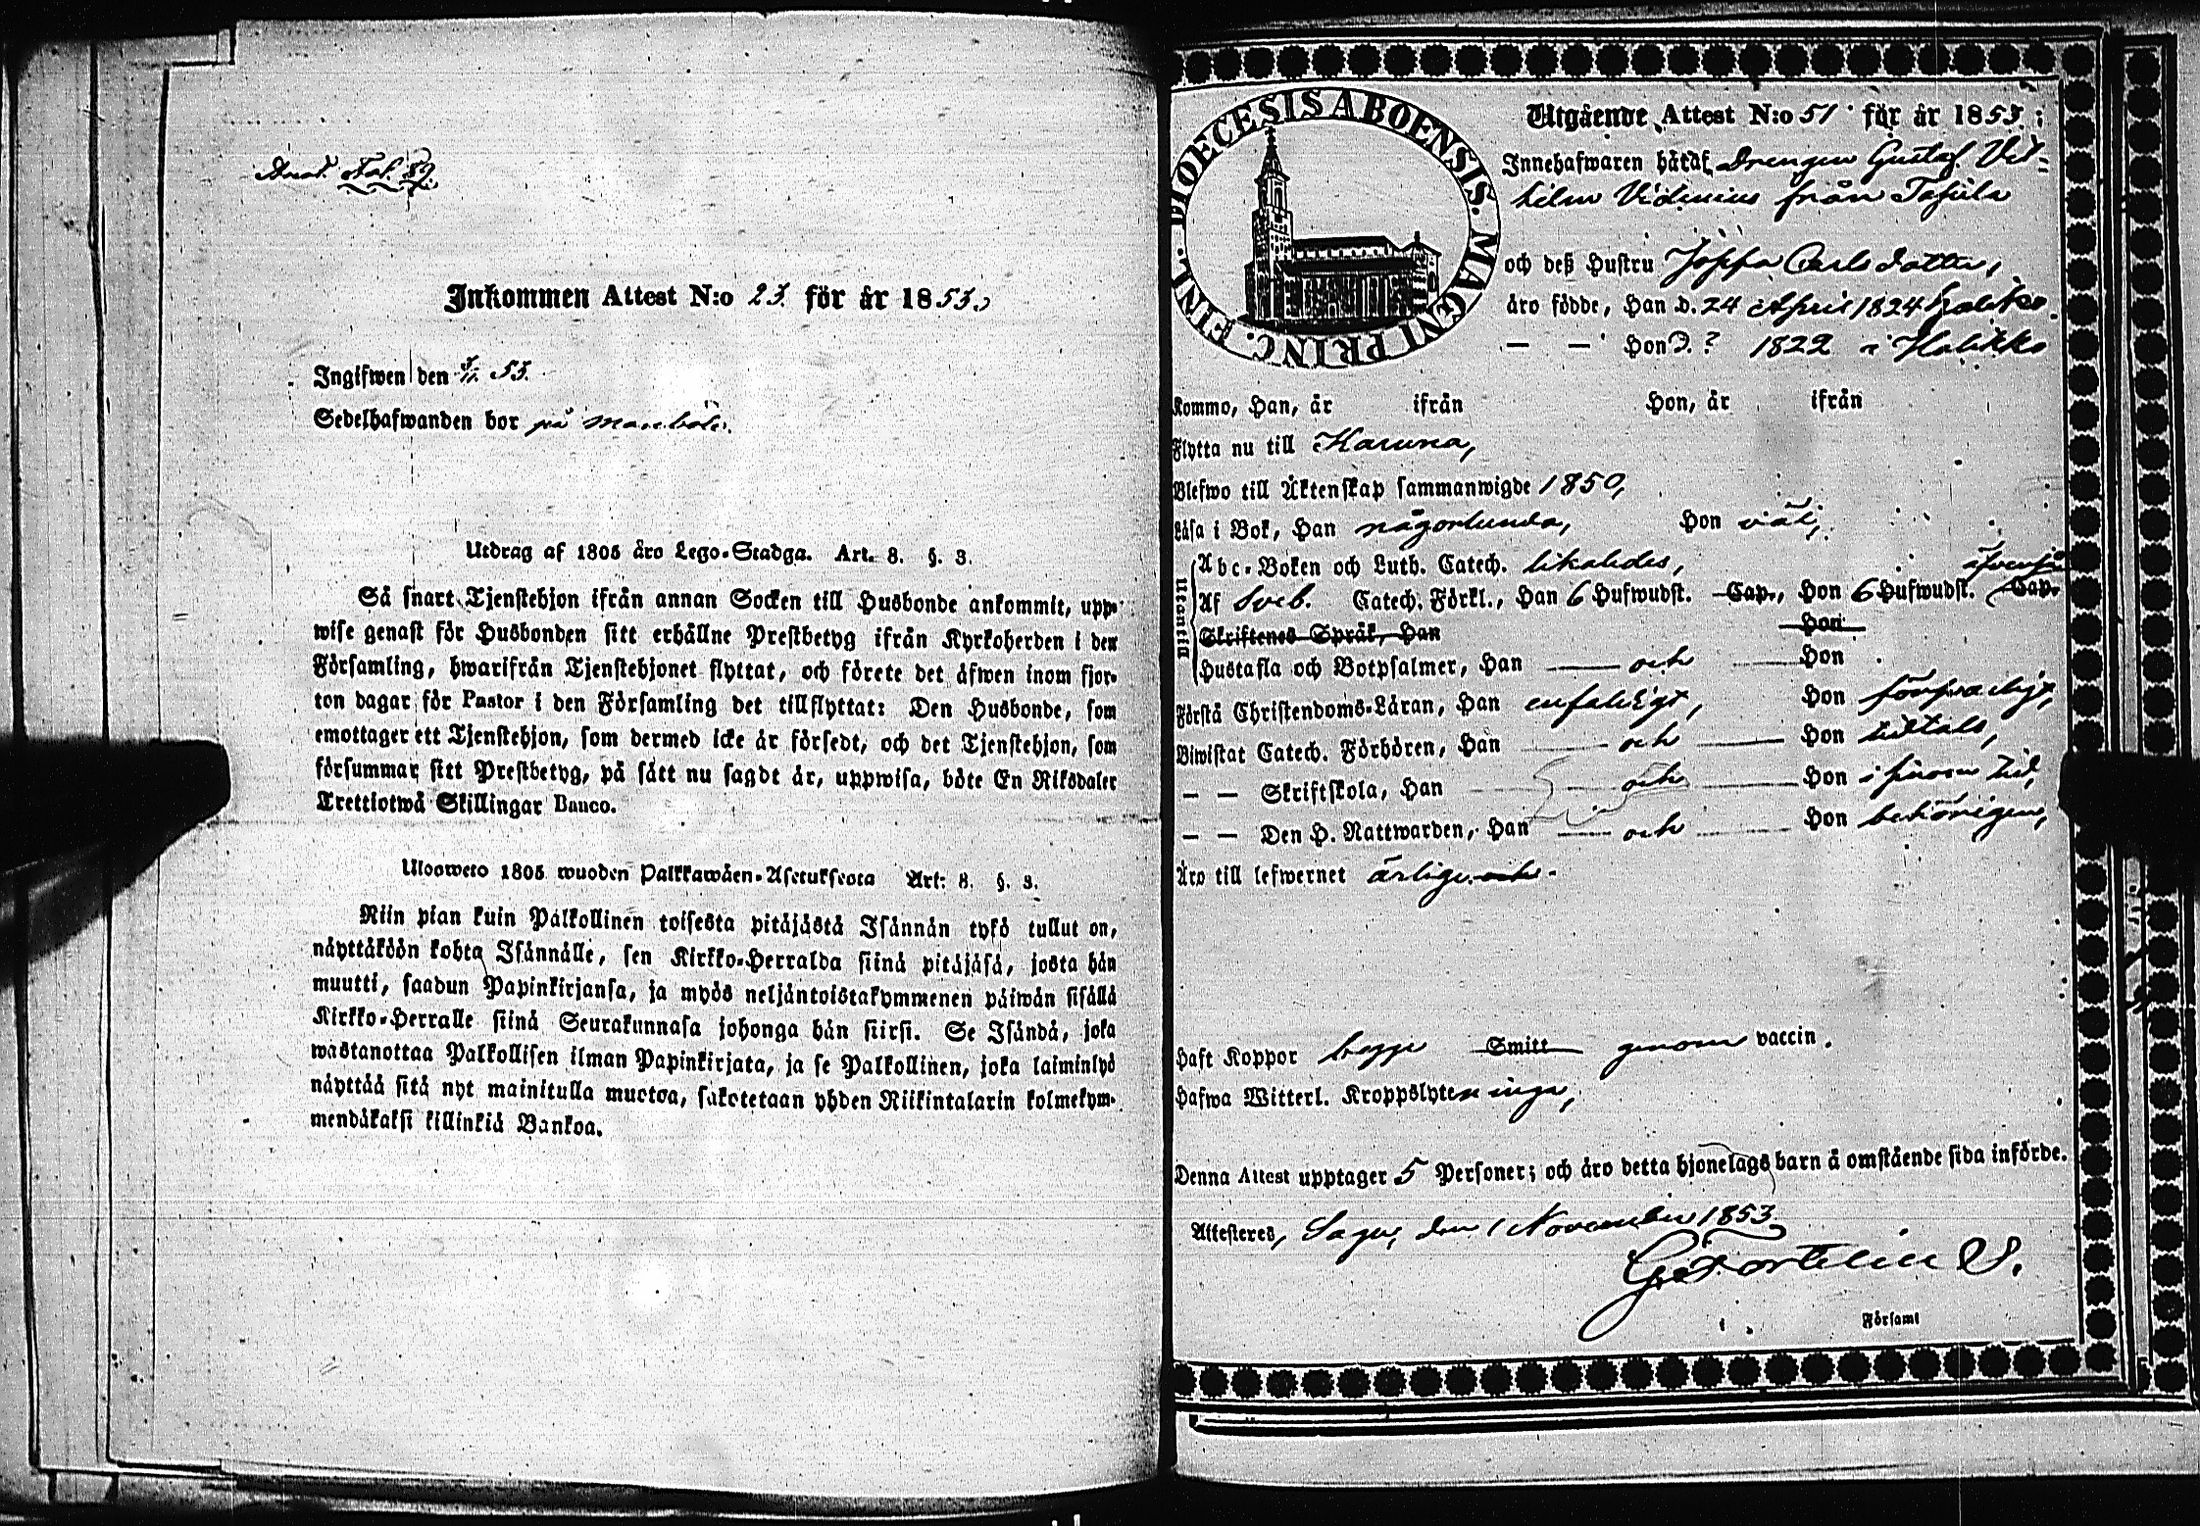 Anot. Fol. 89.
Inkommen Attest N:o 23. för år 1853.
Ingifwen den 3/11 53.
Sedelhafwanden bor på
Utdrag af 1805 åro Lego-Stadga. Art. 8. §. 3.
Så snart Tjenstehjon ifrån annan Socken till Husbonde ankommit, upp-
wise genast för Husbonden sitt erhållne Prestbetyg ifrån Kyrkoherden i den
Församling, hwarifrån Tjenstehjonet flyttat, och förete det äfwen inom fjor-
ton dagar för Pastor i den Församling det tillflyttat: Den Husbonde, som
emottager ett Tjenstehjon, som dermed icke är försedt, och det Tjenstehjon, som
försummar sitt Prestbetyg, på sätt nu sagdt är, uppwisa, böte En Riksdaler
Trettiotwå Skillingar Banco.
Ulosweto 1805 wuoden Palkkawåen-Asetuksesta Art: 8. §. 3.
Niin pian kuin Palkollinen toisesta pitäjästä Isännän tykö tullut on,
näyttäköön kohta Isännälle, sen Kirkko-Herralda siinä pitäjäsä, josta hän
muutti, saadun Papinkirjansa, ja myös neljäntoistakymmenen päiwän sisällä
Kirkko-Herralle siinä Seurakunnasa johonga hän siirsi. Se Isändä, joka
wastanottaa Palkollisen ilman Papinkirjata, ja se Palkollinen, joka laiminlyö
näyttää sitä nyt mainitulla muotoa, sakotetaan yhden Riikintalarin kolmekym-
mendäkaksi killinkiä Bankoa.
DIOECESIS ABOENSIS. MAGNI PRINC. FINL.
Utgående Attest N:o 51 för år 1853;
Innehafwaren håtaf Drengen Gustaf Vil-
helm Videnius från
och deß Hustru Carlsdotter,
äro födde, Han d. 24 April 1824 Halikko.
— — Hon D. ? 1822 i Halikko
Kommo, Han, år ifrån Hon, år ifrån
Flytta nu till Karuna,
Blefwo till Äktenskap sammanwigde 1850,
Läsa i Bok, Han någorlunda, Hon väl,
Utantill
Abc-Boken och Luth. Catech. likaledes, äfvenså
Af Sveb. Catech. Förkl., Han 6 Hufwudst. Cap., Hon 6 Hufwudst. Cap.
Skriftenes Språk, Han Hon
Hustafla och Botpsalmer, Han — och — Hon
Förstå Christendoms-Läran, Han enfaldigt, Hon försvarligt,
Biwistat Catech. Förhören, Han — och — Hon tidtals,
— — Skriftskola, Han — och — Hon i sinom tid,
— — Den H. Nattwarden, Han — och — Hon behörigen,
Äro till lefwernet ärlige och.
Haft Koppor begge Smitt genom vaccin.
Hafwa Witterl. Kroppslyten inga,
Denna Attest upptager 5 Personer; och äro detta hjonelags barn å omstående sida införde.
Attesteres, Sagu, den 1 November 1853
Församl